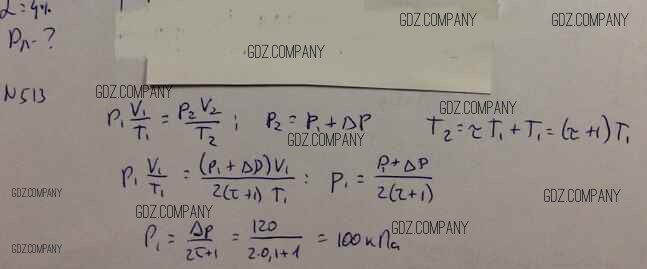 α = 4%
Pл - ?
GDZ.COMPANY GDZ.COMPANY
GDZ.COMPANY
N513
GDZ.COMPANY GDZ.COMPANY
P₁ V₁/T₁ = P₂ V₂/T₂ ; P₂ = P₁ + ΔP T₂ = τ T₁ + T₁ = (τ+1) T₁
GDZ.COMPANY
P₁ V₁/T₁ = (P₁ + ΔP) V₁/2(τ+1) T₁ ; P₁ = P₁ + ΔP/2(τ+1)
GDZ.COMPANY GDZ.COMPANY
GDZ.COMPANY
P₁ = ΔP/2τ+1 = 120/2·0,1+1 = 100 кПа
GDZ.COMPANY
GDZ.COMPANY